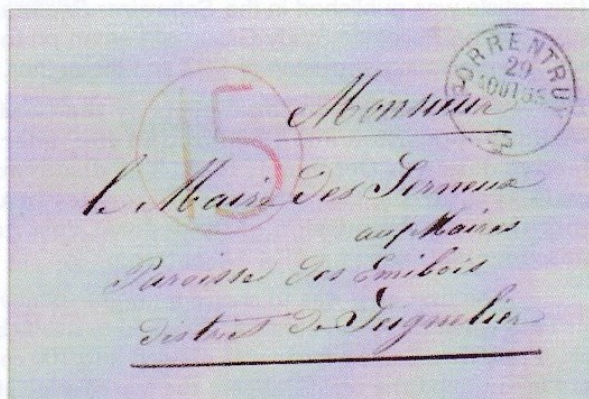 PORRENTRUY
29
AOUT 55
15
Monsieur
le Maire des
aux
Paroisse des Emibois
District de Seignelier